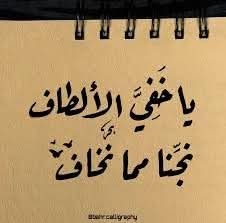 يا خَفِيَّ الألطاف
نجّنا مما نخاف
بحر
@bahr.calligraphy